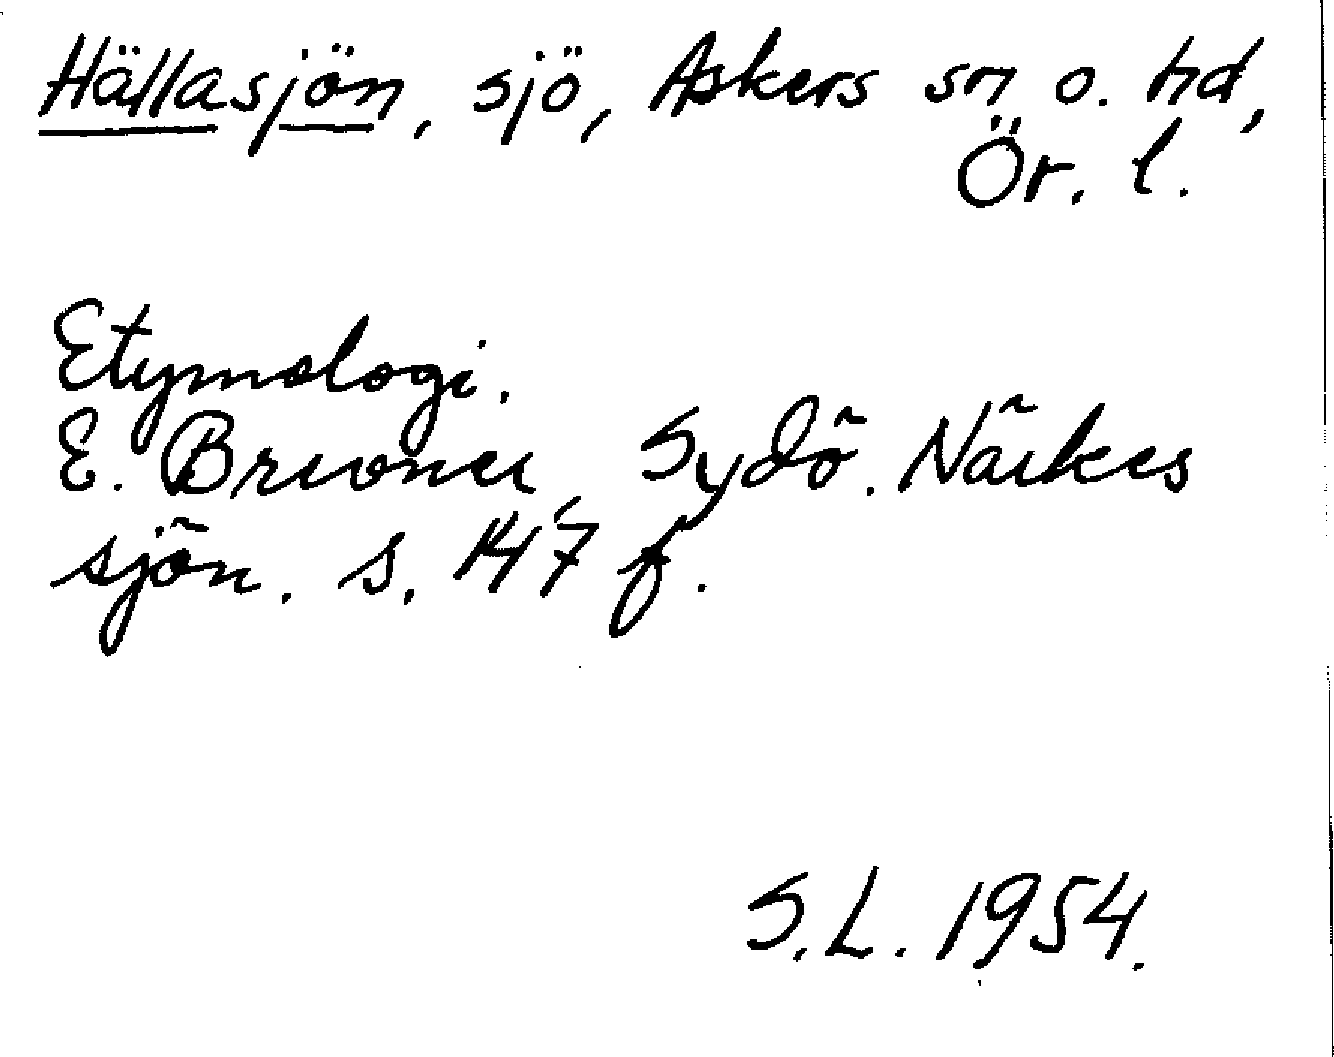 Hällasjön, sjö, Askers sn o. hd,
Ör. l.
Etymologi.
E. Brevner, Sydö. Närkes
sjön. s. 147 f.
S.L. 1954.